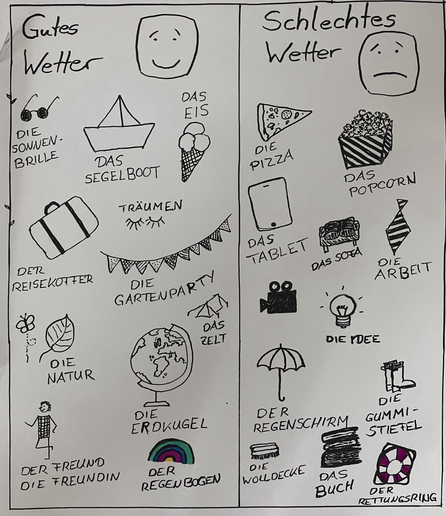 Gutes
Wetter
DIE
SONNEN-
BRILLE
DAS
SEGELBOOT
DAS
EIS
DER
REISEKOFFER
TRÄUMEN
DIE
GARTENPARTY
DAS
ZELT
DIE
NATUR
DIE
ERDKUGEL
DER FREUND
DIE FREUNDIN
DER
REGENBOGEN
Schlechtes
Wetter
DIE
PIZZA
DAS
POPCORN
DAS
TABLET
DAS SOFA
DIE
ARBEIT
DIE IDEE
DER
REGENSCHIRM
DIE
GUMMI-
STIEFEL
DIE
WOLLDECKE
DAS
BUCH
DER
RETTUNGSRING